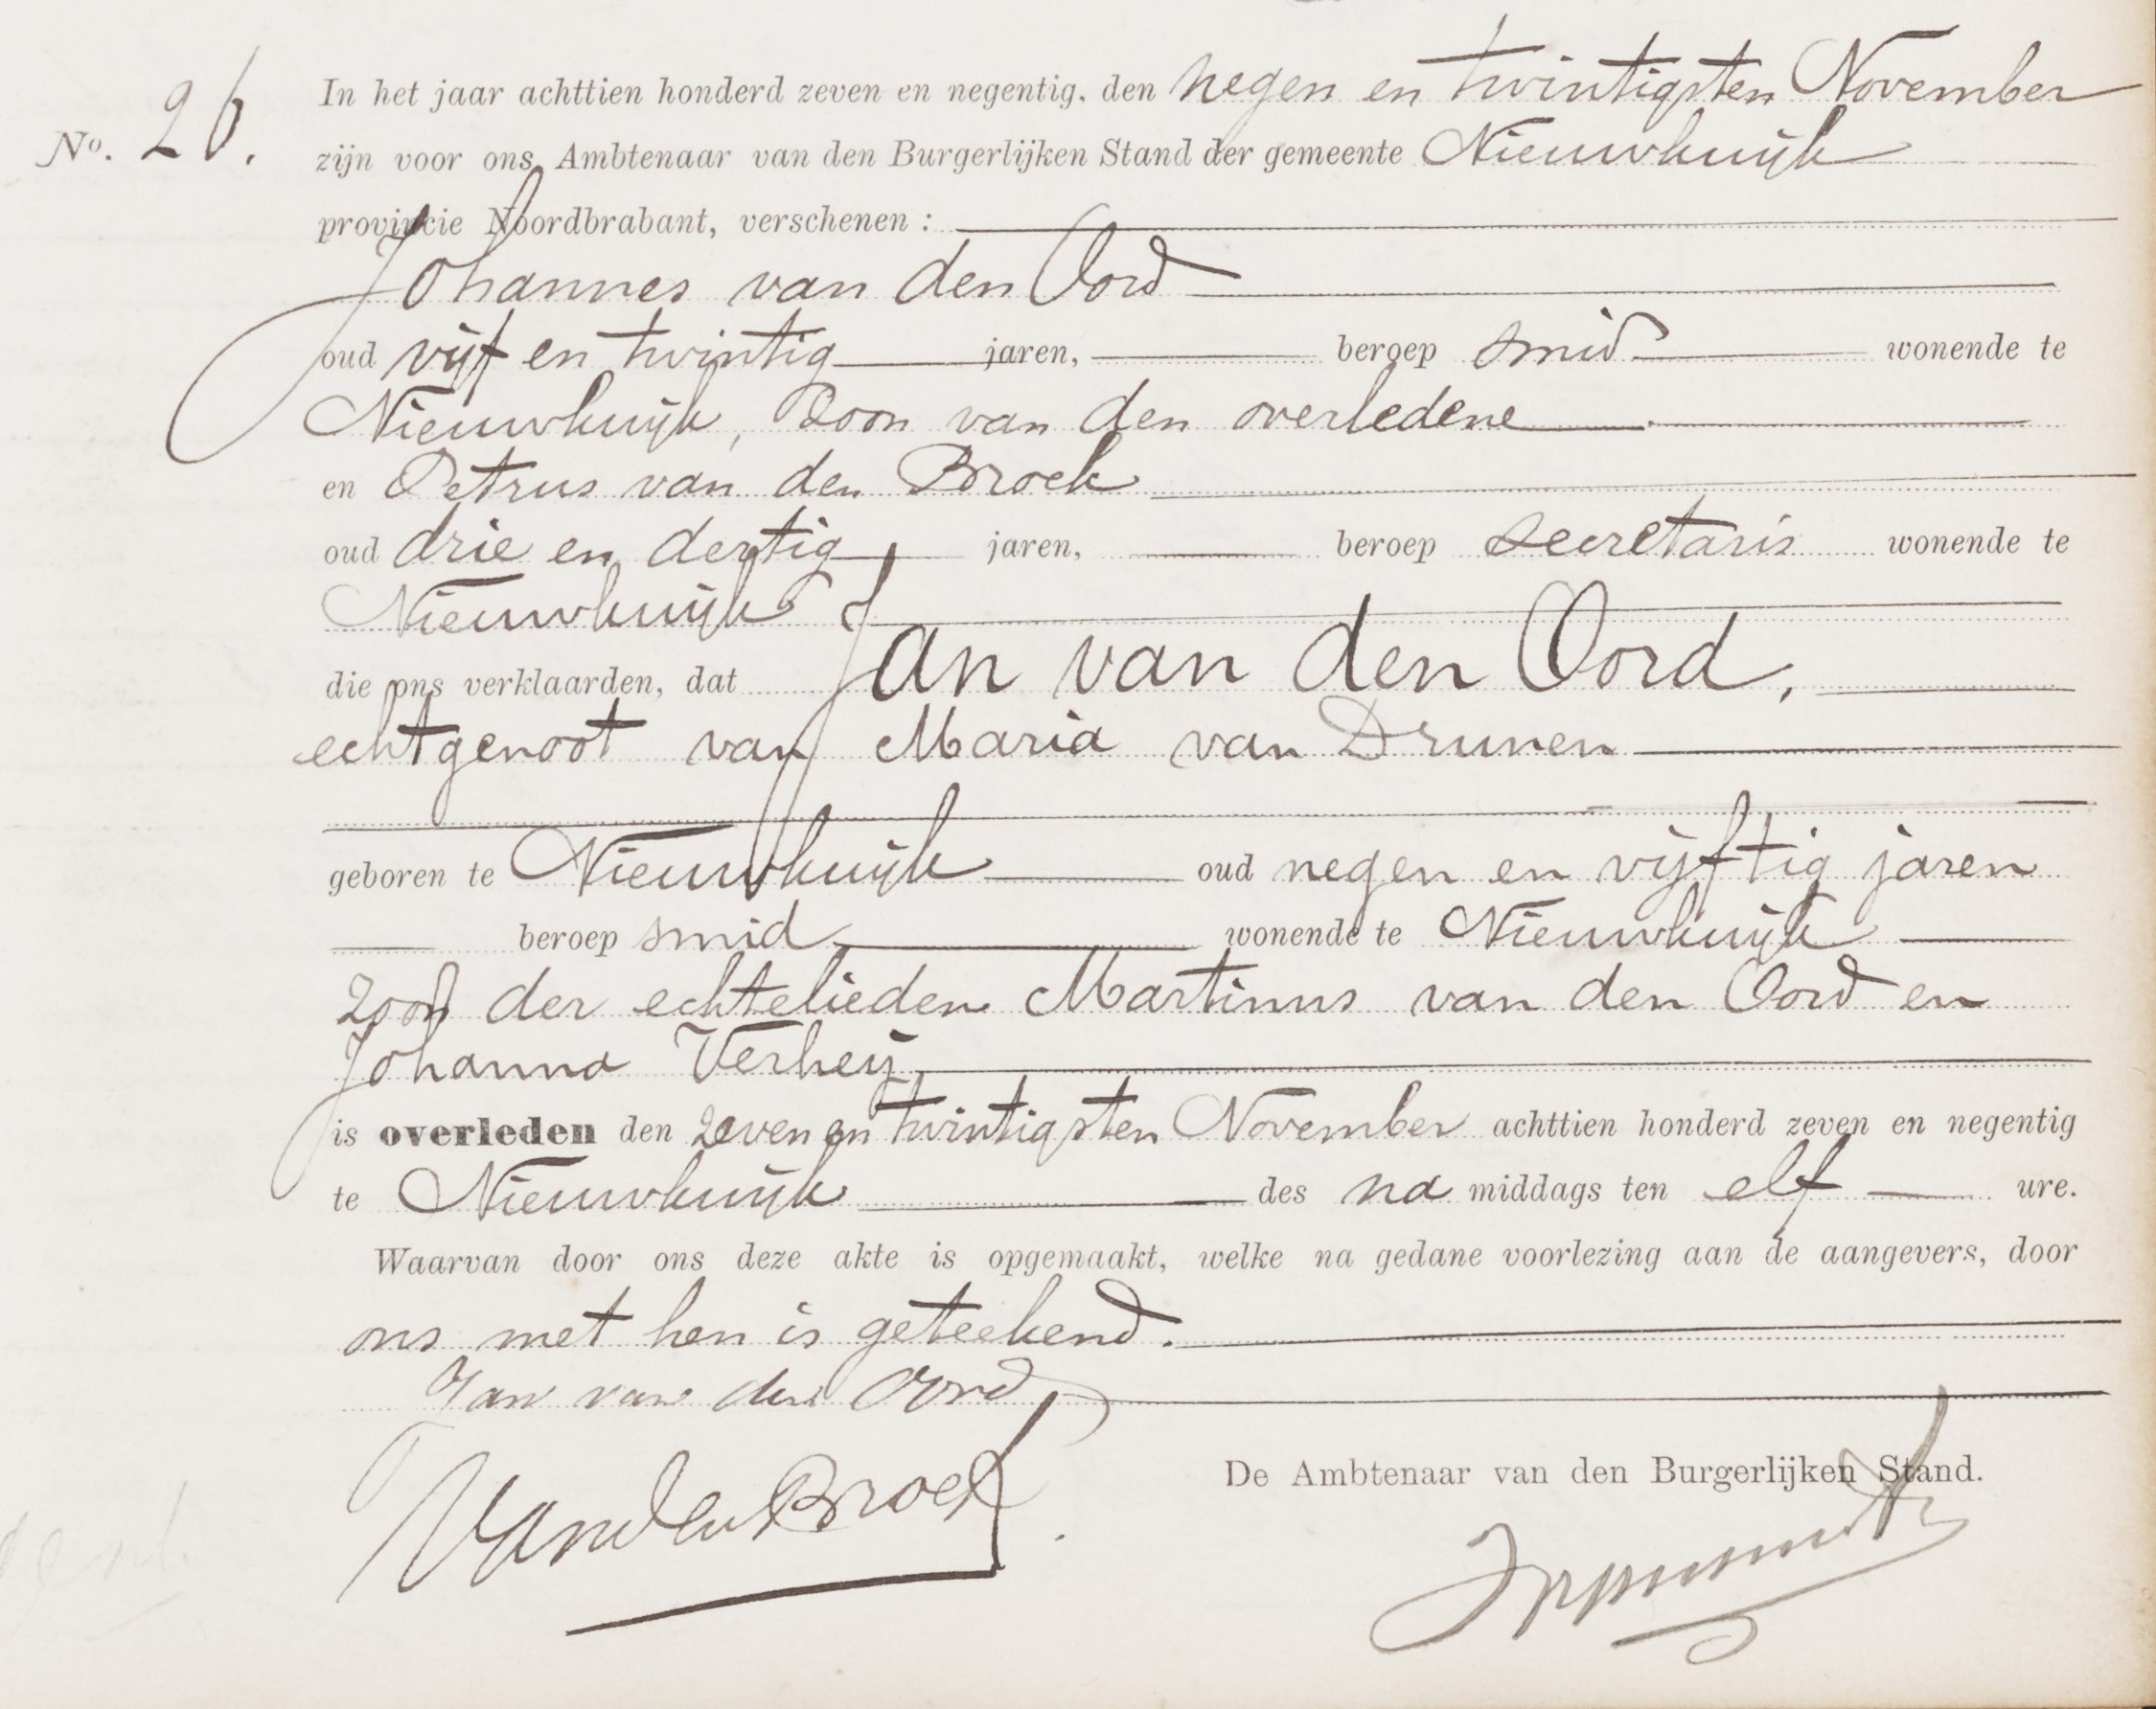 No. 26.
In het jaar achttien honderd zeven en negentig, den negen en twintigsten November
zijn voor ons, Ambtenaar van den Burgerlijken Stand der gemeente Nieuwkuijk
provincie Noordbrabant, verschenen :
Johannes van den Oord
oud vijf en twintig jaren, beroep smid wonende te
Nieuwkuijk, zoon van den overledene
en Petrus van den Broek
oud drie en dertig jaren, beroep secretaris wonende te
Nieuwkuijk
die ons verklaarden, dat Jan van den Oord,
echtgenoot van Maria van Drunen
geboren te Nieuwkuijk oud negen en vijftig jaren
beroep smid wonende te Nieuwkuijk
zoon der echtelieden Martinus van den Oord en
Johanna Verheij
is overleden den zeven en twintigsten November achttien honderd zeven en negentig
te Nieuwkuijk des na middags ten elf ure.
Waarvan door ons deze akte is opgemaakt, welke na gedane voorlezing aan de aangevers, door
ons met hen is geteekend.
Jan van den Oord
VandenBroek
De Ambtenaar van den Burgerlijken Stand.